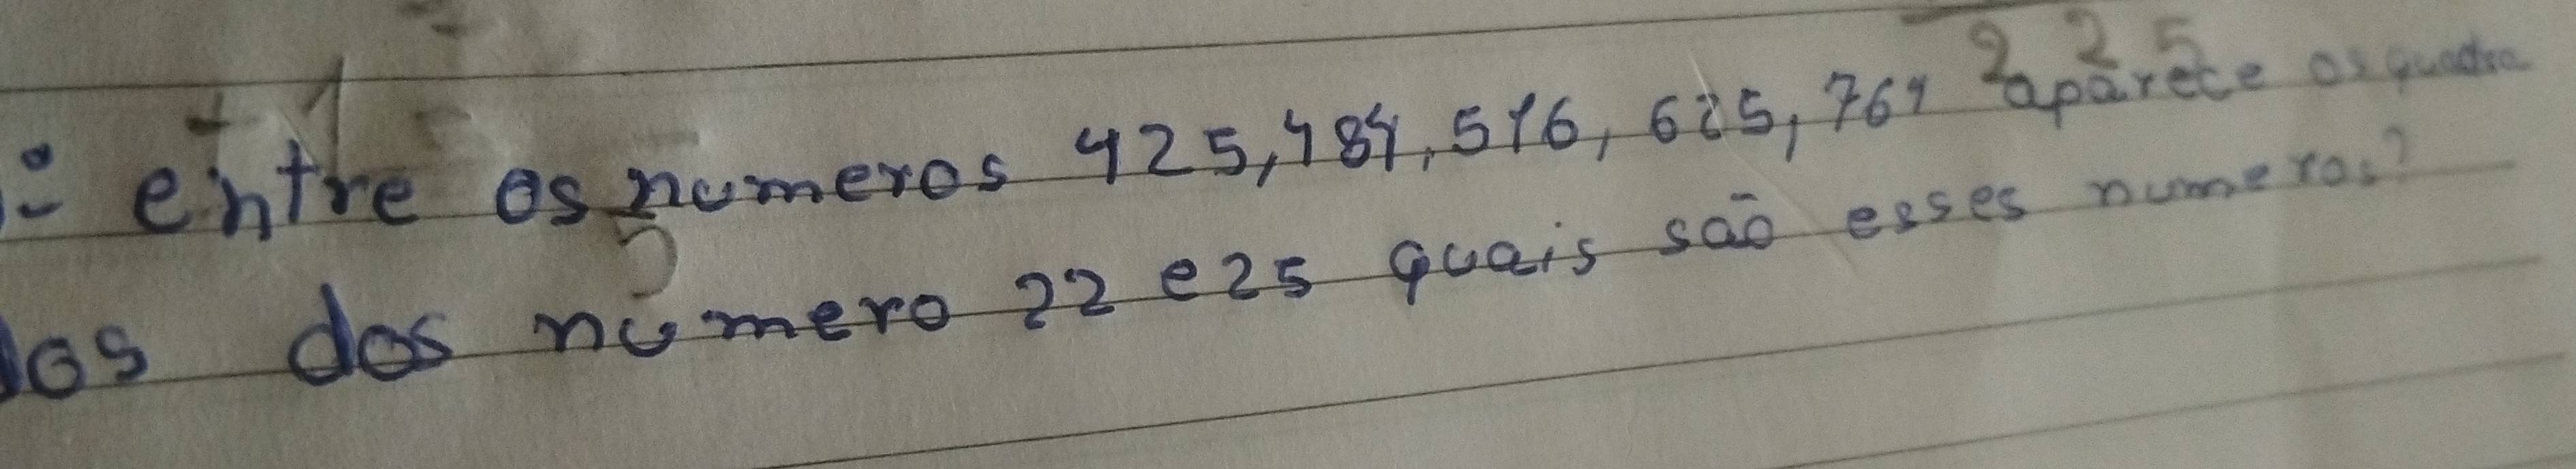 2 2 5
entre os numeros 425,484,516,625,764 aparece os quadra
dos dos número 22 e 25 quais são esses numeros?